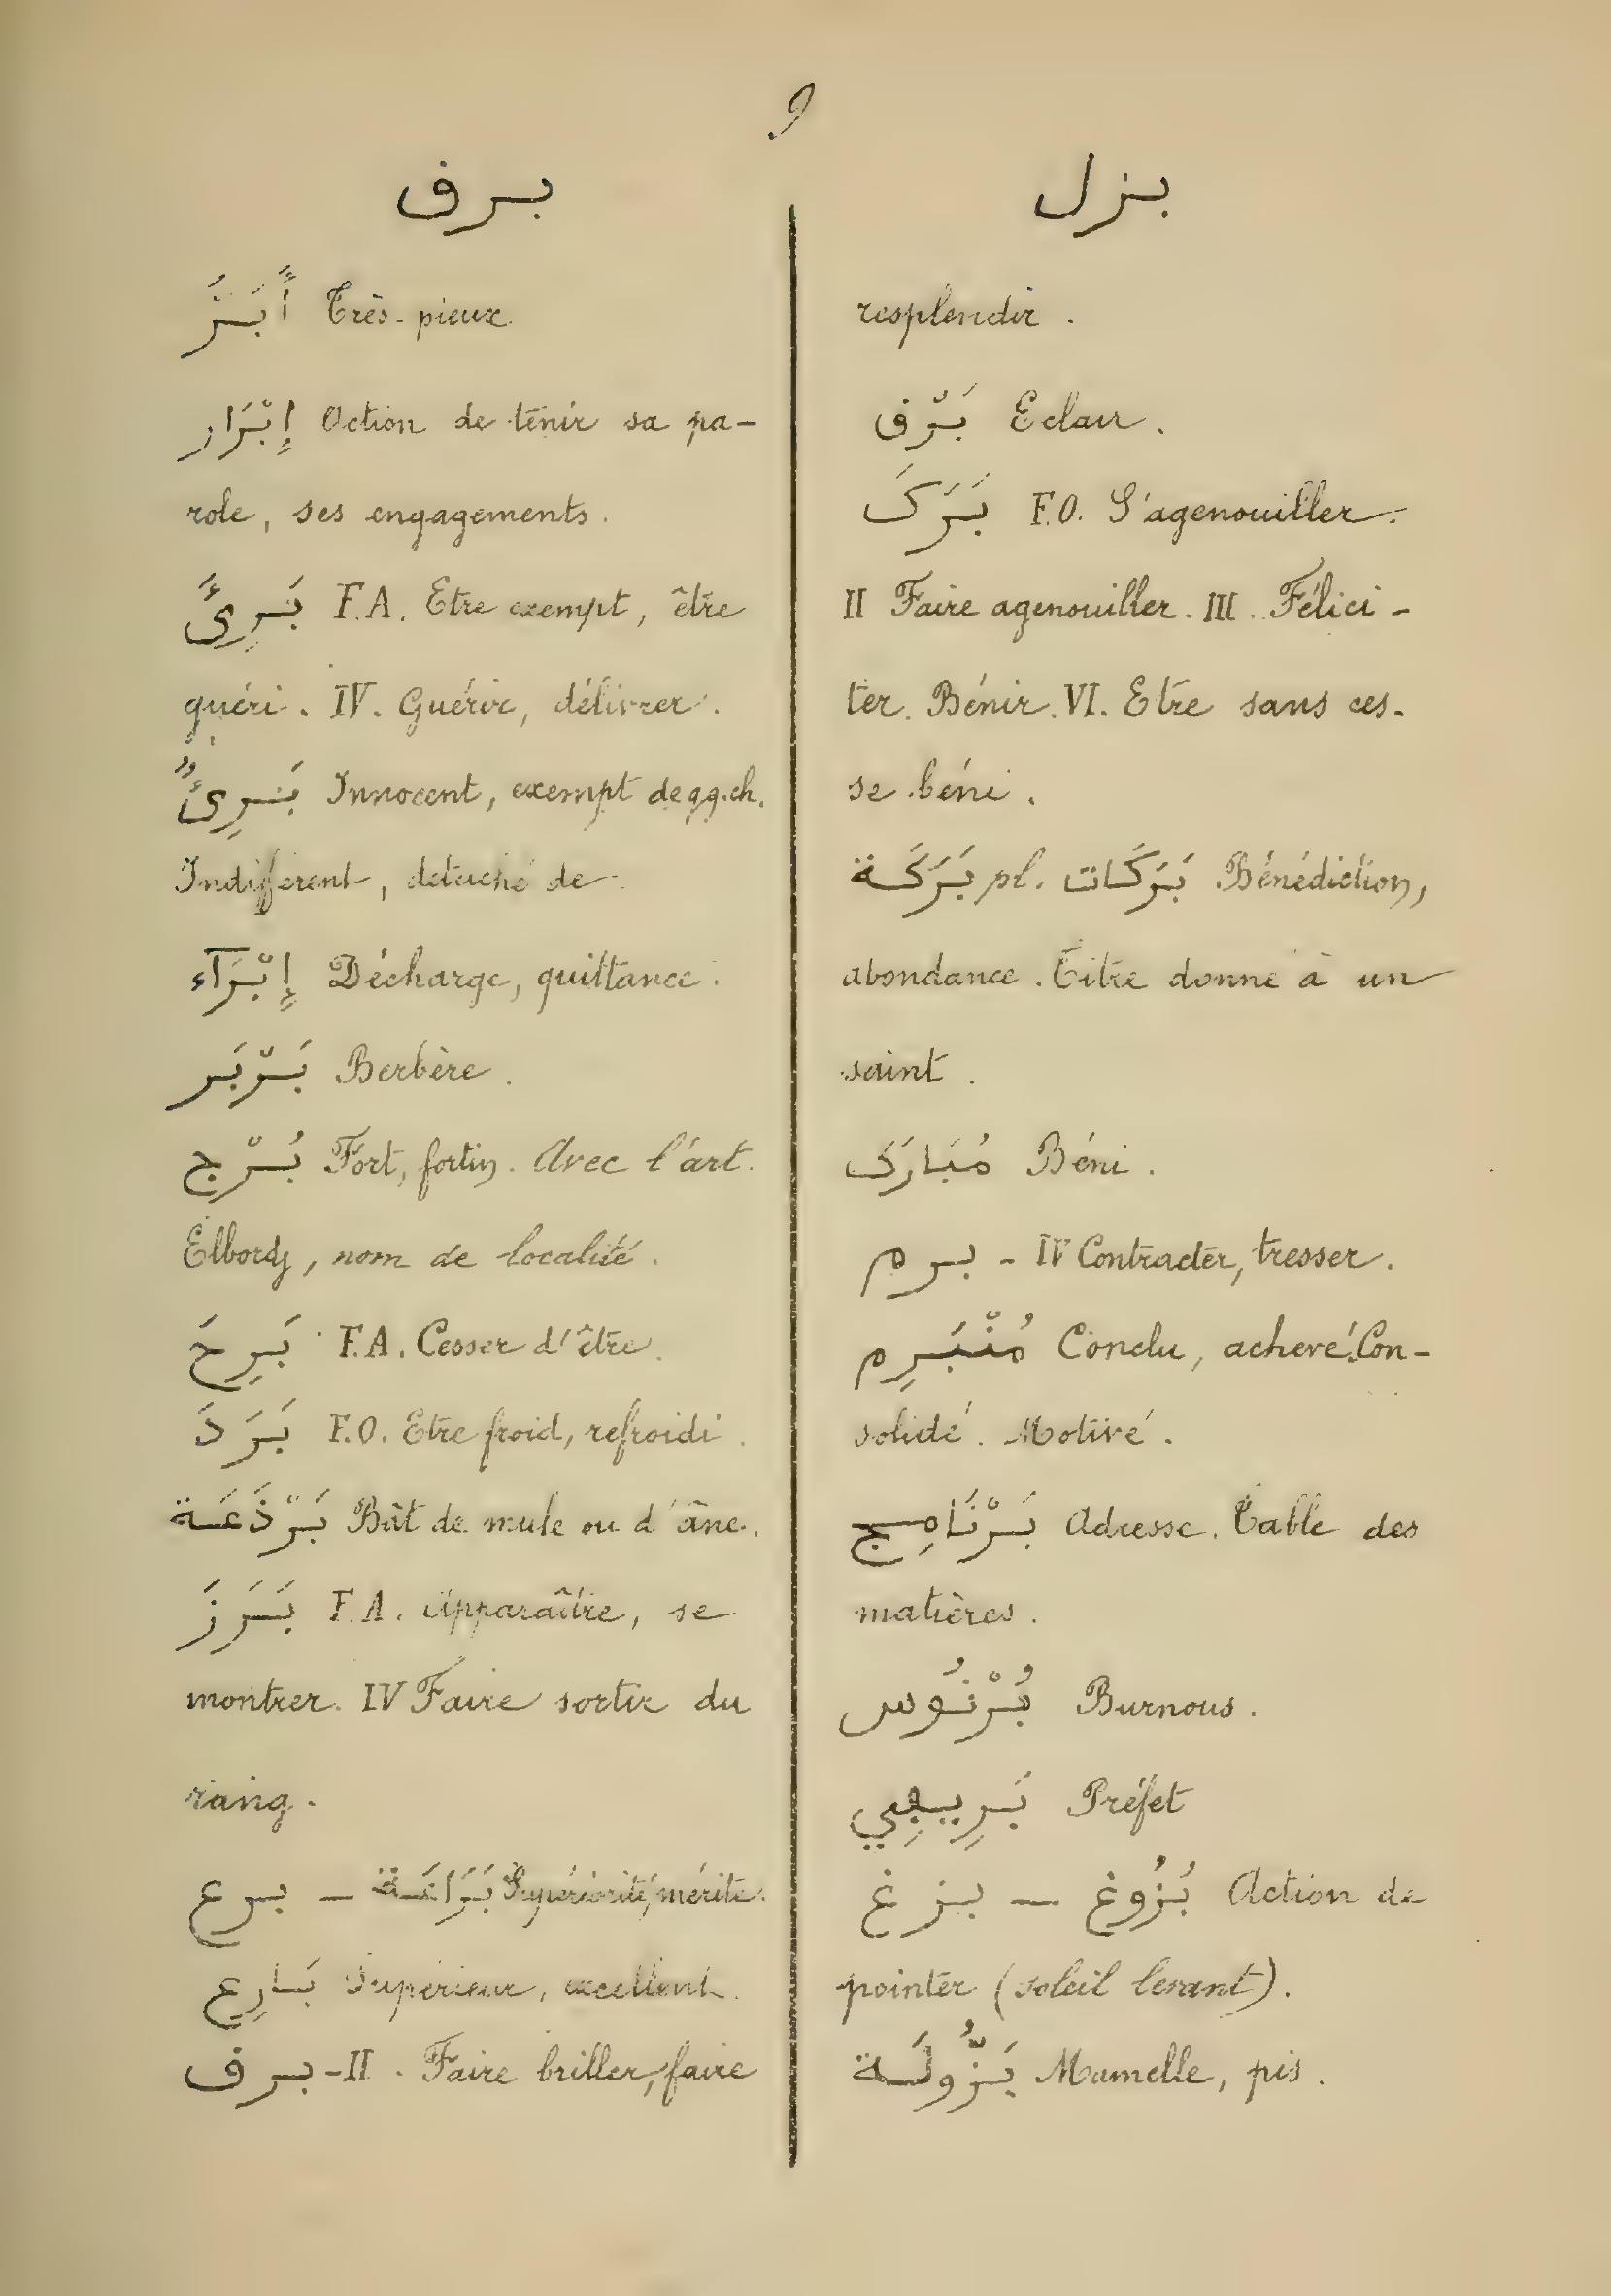 9
برف
أَبَرَّ Très-pieux
إِبْرَار Action de tenir sa pa-
role, ses engagements.
بَرِئَ F.A. Etre exempt, être
guéri. IV. Guérir, délivrer.
بَرِئٌ Innocent, exempt de qq.ch.
Indifferent, detaché de
إِبْرَآء Décharge, quittance.
بَرْبَر Berbère.
بُرْج Fort, fortin. Avec l'art.
Elbordj, nom de localité.
بَرِحَ F.A. Cesser d'être.
بَرَدَ F.O. Etre froid, refroidi.
بَرْذَعَة Bât de mule ou d'âne.
بَرَزَ F.A. Apparaître, se
montrer. IV Faire sortir du
rang.
برع – بَرَاعَة Supériorité, mérite.
بَارِع Supérieur, excellent.
برف - II. Faire briller, faire
بزل
resplendir.
بَرْف Eclair.
بَرَكَ F.O. S'agenouiller.
II Faire agenouiller. III. Félici-
ter. Bénir. VI. Etre sans ces-
se béni.
بَرَكَة pl. بَرَكَات Bénédiction,
abondance. Titre donné à un
saint.
مُبَارَك Béni.
برم - IV Contracter, tresser.
مُنْبَرِم Conclu, achevé. Con-
solidé. Motivé.
بَرْنَامِج Adresse. Table des
matières.
بُرْنُوس Burnous.
بَرِيجِي Préfet
بزغ – بُزُوغ Action de
pointer (soleil levant).
بَزُّولَة Mamelle, pis.